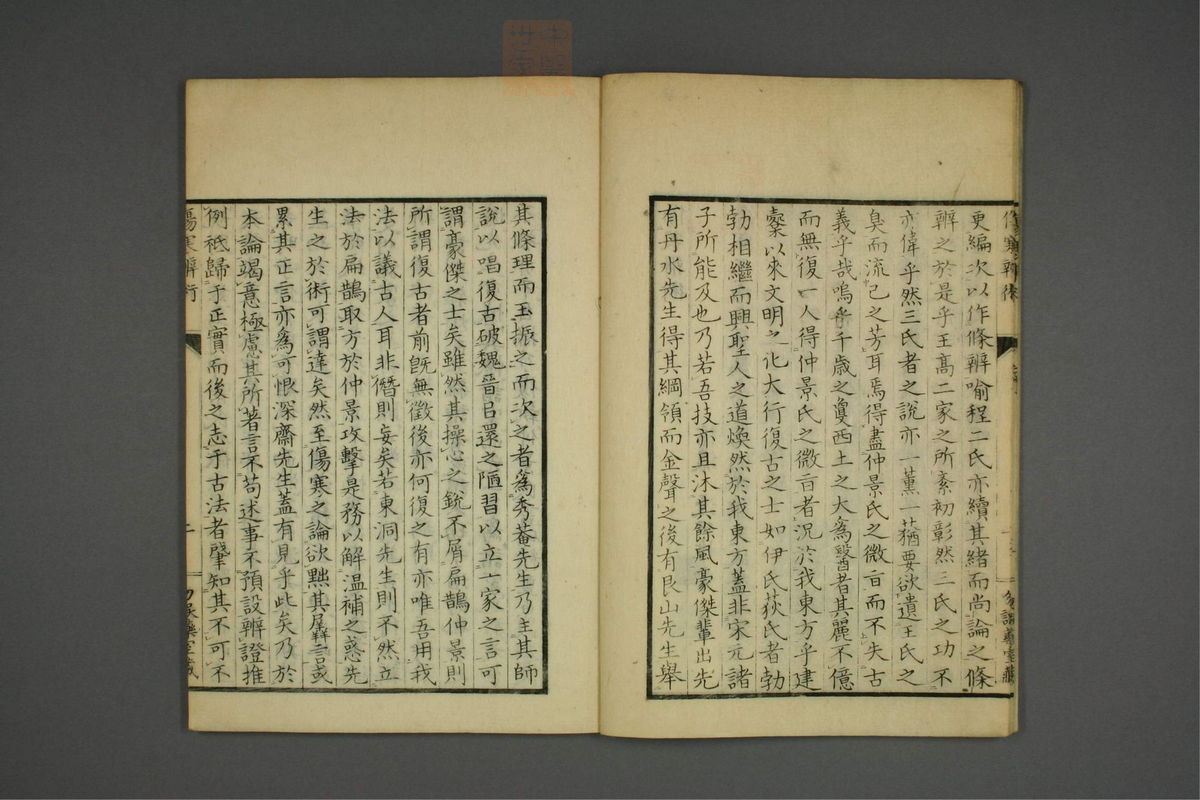 更編次以作條辨喻程二氏亦續其緒而尚論之條
辨之於是乎王高二家之所紊初彰然三氏之功不
亦偉乎然三氏者之說亦一薫一蕕要欲遺王氏之
臭而流己之芳耳焉得盡仲景氏之微旨而不失古
義乎哉嗚乎千歳之敻西土之大為醫者其麗不億
而無復一人得仲景氏之微旨者況於我東方乎建
櫜以來文明之化大行復古之士如伊氏荻氏者勃
勃相繼而興聖人之道煥然於我東方蓋非宋元諸
子所能及也乃若吾技亦且沐其餘風豪傑輩出先
有丹水先生得其綱領而金聲之後有艮山先生舉
其條理而玉振之而次之者為秀菴先生乃主其師
說以唱復古破魏晋已還之陋習以立一家之言可
謂豪傑之士矣雖然其操心之銳不屑扁鵲仲景則
所謂復古者前旣無徵後亦何復之有亦唯吾用我
法以議古人耳非僭則妄矣若東洞先生則不然立
法於扁鵲取方於仲景攻擊是務以解温補之惑先
生之於術可謂達矣然至傷寒之論欲黜其孱言或
累其正言亦為可恨深齋先生蓋有見乎此矣乃於
本論竭意極慮其所著言不苟述事不預設辨證推
例袛歸于正實而後之志于古法者肇知其不可不
傷寒辨術
二